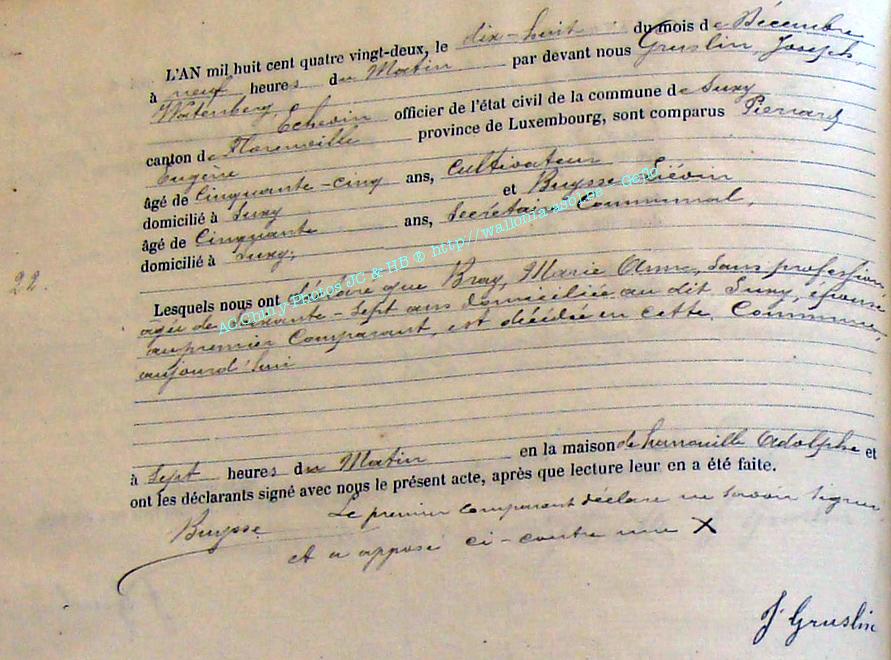 L'AN mil huit cent quatre vingt-deux, le dix-huit du mois de Décembre
à neuf heures du Matin par devant nous Gruslin, Joseph,
Watenberg, Echevin officier de l'état civil de la commune de Suxy
canton de Florenville province de Luxembourg, sont comparus Pierrard
Eugène
âgé de Cinquante-cinq ans, Cultivateur
domicilié à Suxy et Buysse Liévin
âgé de Cinquante ans, Secrétaire Communal,
domicilié à Suxy,
22.
Lesquels nous ont déclaré que Bray, Marie Anne, Sans profession
agée de -Sept ans domiciliée au dit Suxy, épouse
au premier Comparant, est décédée en cette Commune,
aujourd'hui
à Sept heures du Matin en la maison de Adolphe et
ont les déclarants signé avec nous le présent acte, après que lecture leur en a été faite.
Le premier comparant déclare ne savoir signer
Buysse
et a apposé ci-contre une X
J Gruslin
AC Chiny Photos JC & HB ® http://wallonia-asbl.be - Geno